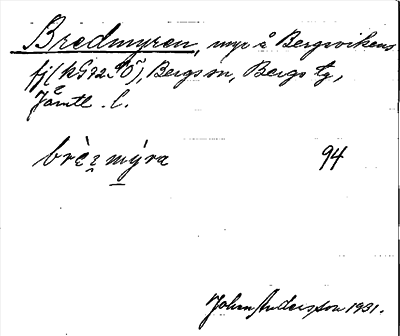 Bredmyren, myr å Bergsvikens
fj (kG92SÖ), Bergs sn, Bergs tg,
Jämtl. l.
brèₑmýra 94
Johan Andersson 1931.